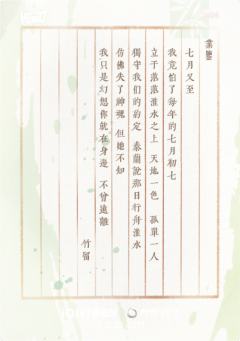 七月又至
我竟怕了每年的七月初七
立于落落淮水之上 天地一色 孤單一人
獨守我们的約定 泰蘭說那日行舟淮水
仿佛失了神魂 但她不知
我只是幻想你就在身邊 不曾遠離
竹留